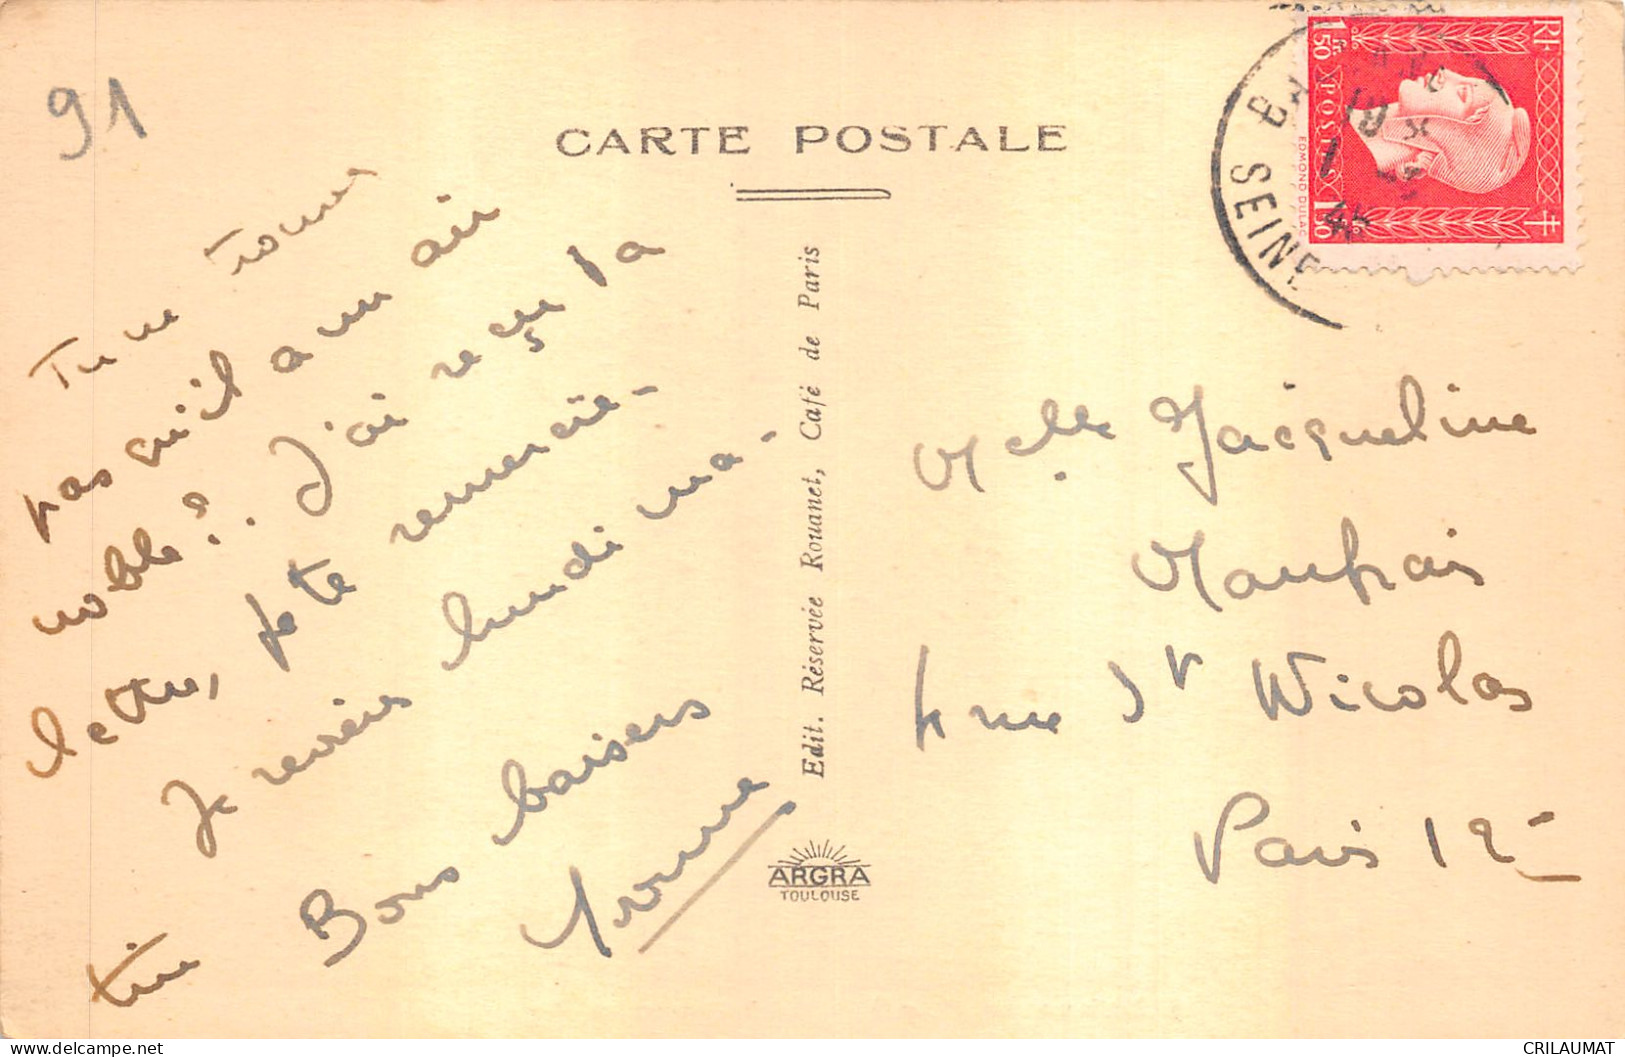 91
CARTE POSTALE
Tu ne trouves
pas qu'il a un air
noble?. J'ai reçu ta
lettre, je te remercie-
Je reviens lundi ma-
tin Bons baisers
Yvonne
Edit. Réservée Rouanet, Café de Paris
ARGRA
TOULOUSE
RF
1fr.50
POSTES
1fr.50
EDMOND DULAC
SEINE
Melle Jacqueline
Maufrais
4 rue St Nicolas
Paris 12e
CRILAUMAT